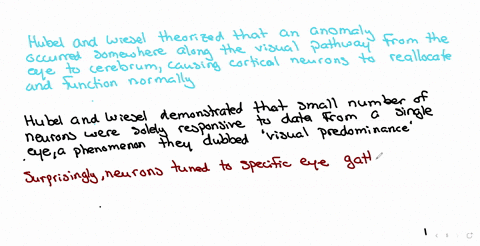 Hubel and Wiesel theorized that an anomaly
occurred somewhere along the visual pathway from the
eye to cerebrum, causing cortical neurons to reallocate
and function normally
Hubel and Wiesel demonstrated that small number of
neurons were solely responsive to data from a single
eye, a phenomenon they dubbed 'visual predominance'
Surprisingly, neurons tuned to specific eye gatl
1